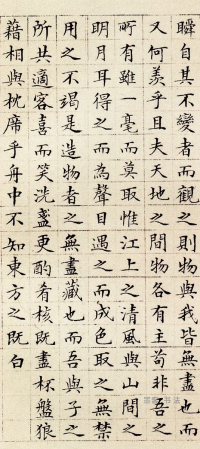 瞬自其不變者而觀之則物與我皆無盡也而
又何羨乎且夫天地之間物各有主苟非吾之
所有雖一毫而莫取惟江上之清風與山間之
明月耳得之而為聲目遇之而成色取之無禁
用之不竭是造物者之無盡藏也而吾與子之
所共適客喜而笑洗盞更酌肴核既盡杯盤狼
藉相與枕席乎舟中不知東方之既白